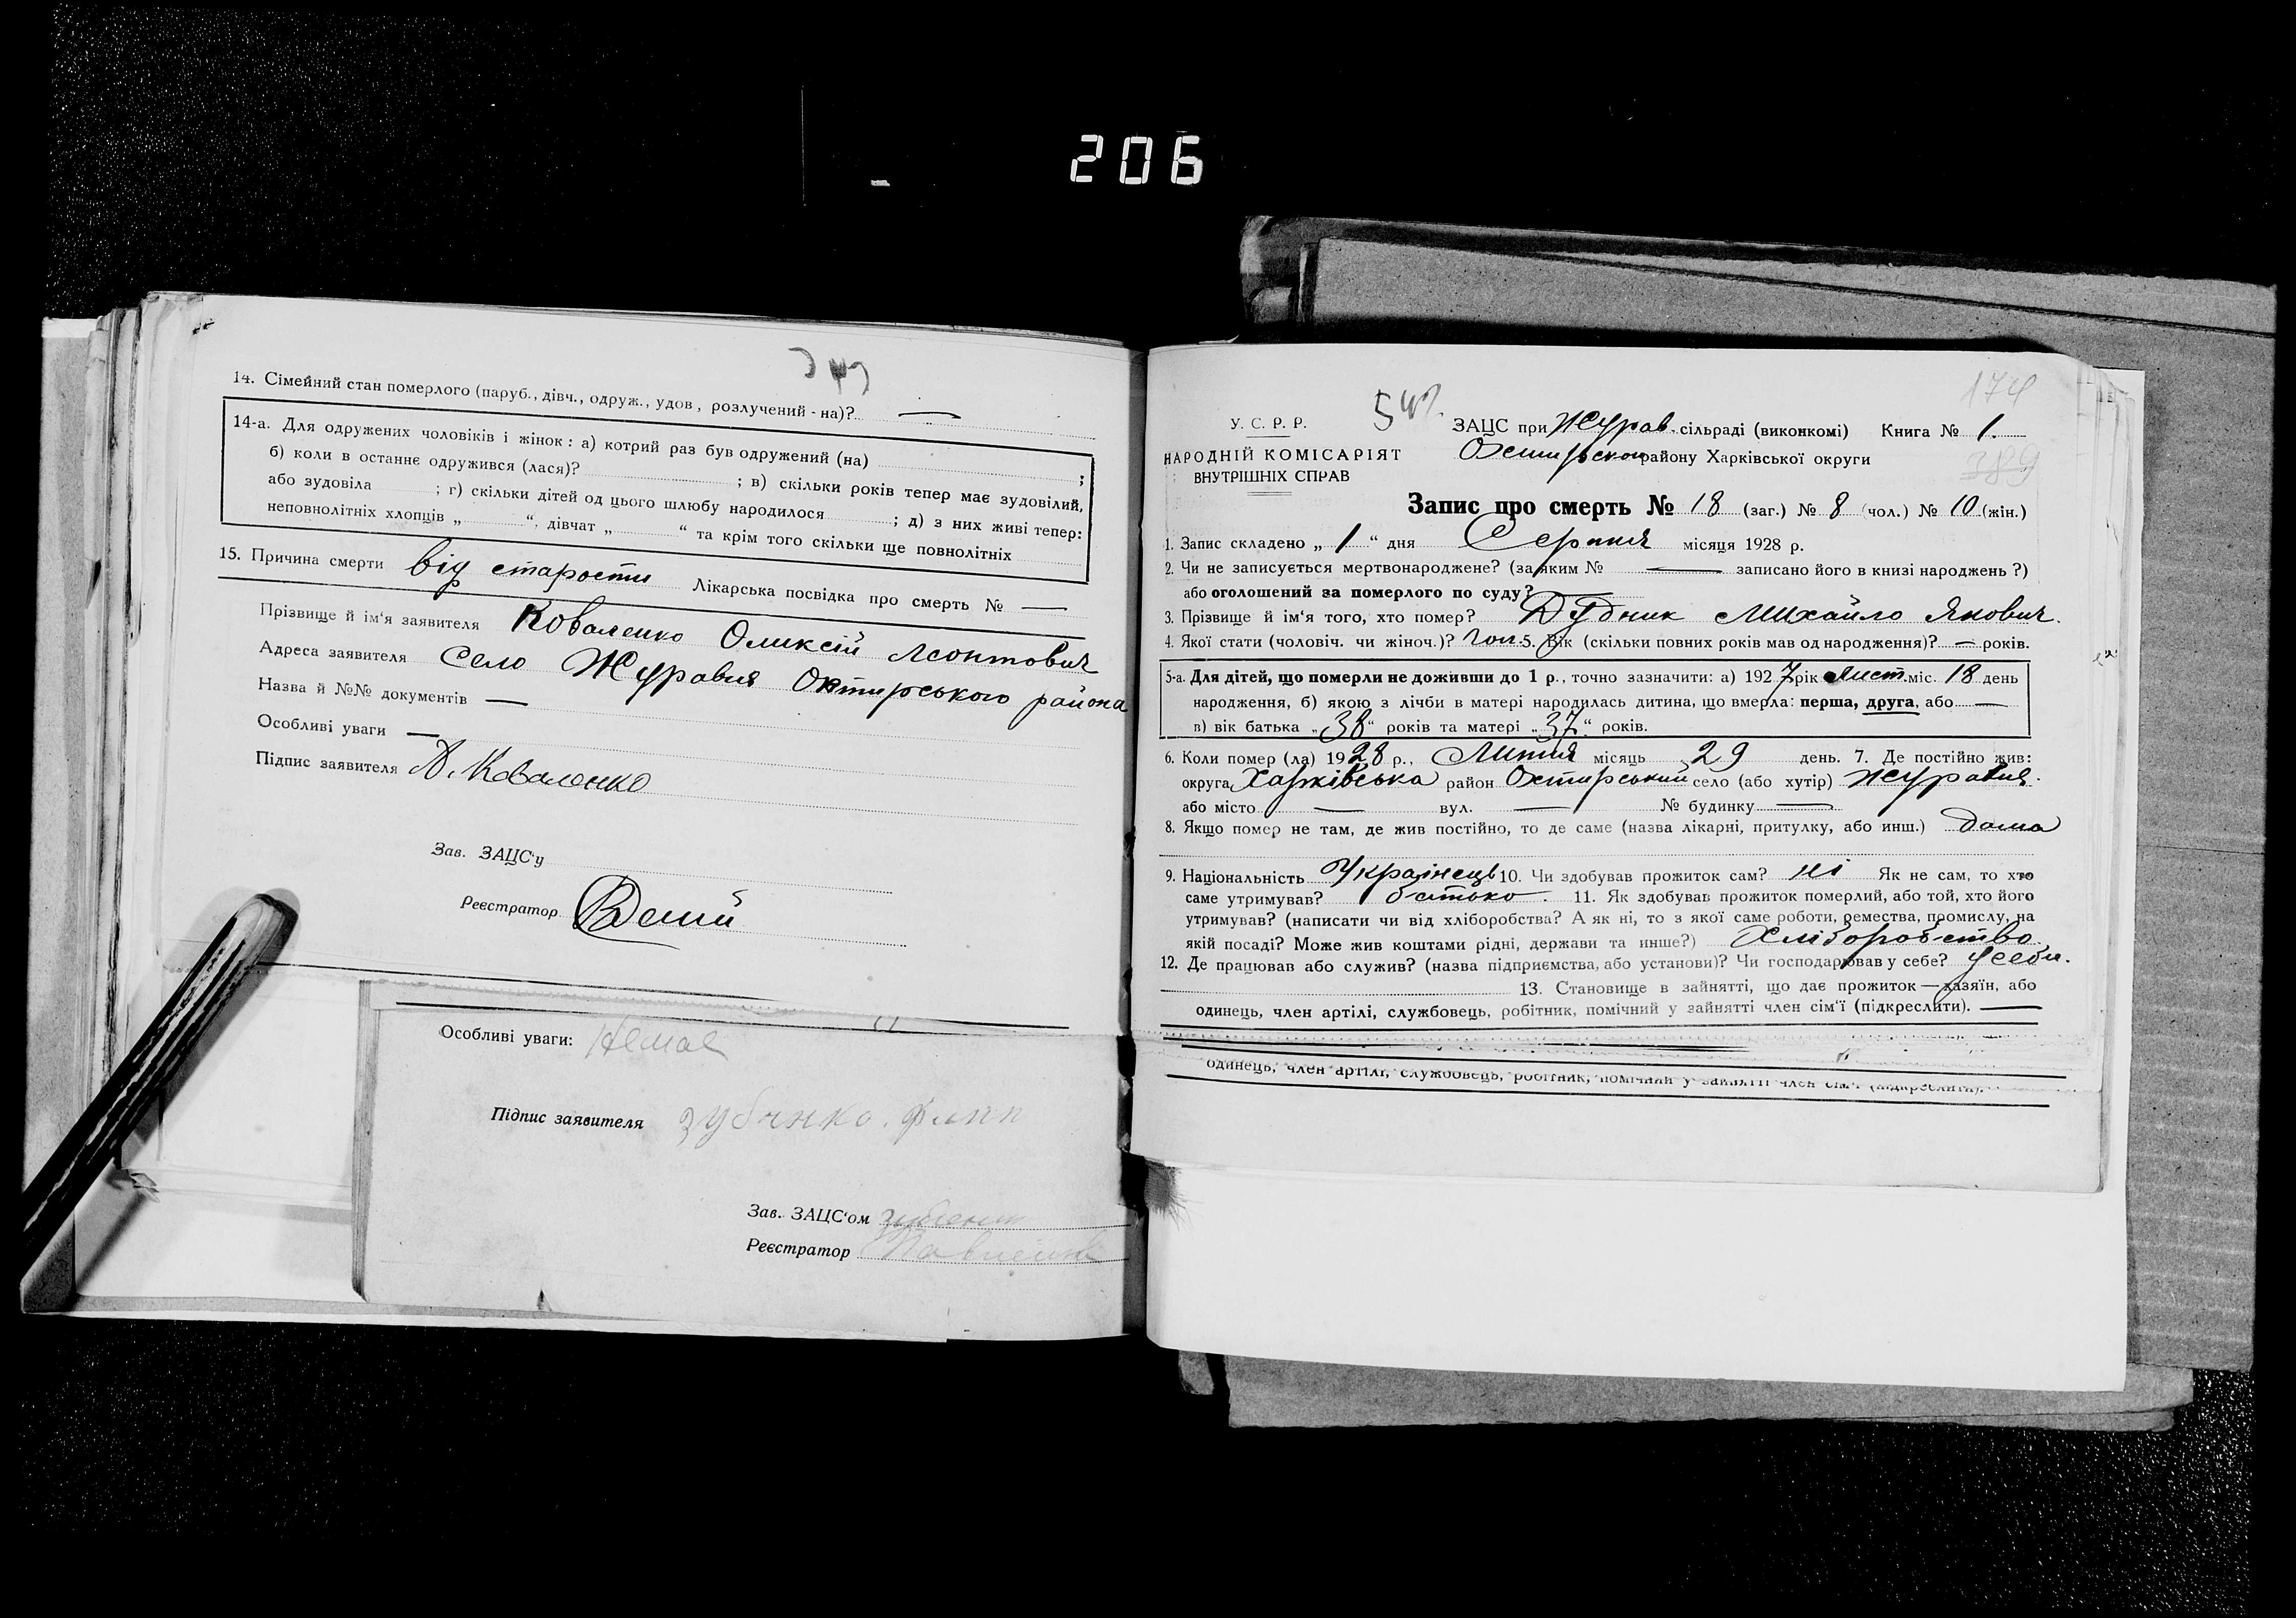 206
343
14. Сімейний стан померлого (паруб., дівч., одруж., удов., розлучений-на)? —
14-а. Для одружених чоловіків і жінок: а) котрий раз був одружений (на) ;
б) коли в останнє одружився (лася)? ; в) скільки років тепер має зудовілий,
або зудовіла ; г) скільки дітей од цього шлюбу народилося ; д) з них живі тепер:
неповнолітніх хлопців „ “, дівчат „ “ та крім того скільки ще повнолітніх
15. Причина смерти від старости Лікарська посвідка про смерть № —
Прізвище й ім'я заявителя Коваленко Оликсій Леонтович
Адреса заявителя Село Журавня Охтирського района
Назва й №№ документів —
Особливі уваги —
Підпис заявителя А. Коваленко
Зав. ЗАЦС'у
Реєстратор
Особливі уваги: Немає
Підпис заявителя
Зав. ЗАЦС'ом
Реєстратор
174
У. С. Р. Р.
НАРОДНІЙ КОМІСАРІЯТ
ВНУТРІШНІХ СПРАВ
ЗАЦС при Журав. сільраді (виконкомі) Книга № 1.
Охтирском району Харківської округи
389
Запис про смерть № 18 (заг.) № 8 (чол.) № 10 (жін.)
1. Запис складено „ 1 “ дня Серпня місяця 1928 р.
2. Чи не записується мертвонароджене? (за яким № — записано його в книзі народжень?)
або оголошений за померлого по суду? —
3. Прізвище й ім'я того, хто помер? Дудник Михайло Якович.
4. Якої стати (чоловіч. чи жіноч.)? Чол. 5. Вік (скільки повних років мав од народження)? — років.
5-а. Для дітей, що померли не доживши до 1 р., точно зазначити: а) 1927 рік Лист. міс. 18 день
народження, б) якою з лічби в матері народилась дитина, що вмерла: перша, друга, або —
в) вік батька „38“ років та матері „37“ років.
6. Коли помер (ла) 1928 р., Липня місяць 29 день. 7. Де постійно жив:
округа Харківська район Охтирський село (або хутір) Журавня.
або місто — вул. — № будинку —
8. Якщо помер не там, де жив постійно, то де саме (назва лікарні, притулку, або инш.) дома
9. Національність Українець 10. Чи здобував прожиток сам? ні Як не сам, то хто
саме утримував? батько. 11. Як здобував прожиток померлий, або той, хто його
утримував? (написати чи від хліборобства? А як ні, то з якої саме роботи, ремества, промислу, на
якій посаді? Може жив коштами рідні, держави та инше?) Хліборобство.
12. Де працював або служив? (назва підприємства, або установи)? Чи господарював у себе? у себи.
13. Становище в зайнятті, що дає прожиток — хазяїн, або
одинець, член артілі, службовець, робітник, помічний у зайнятті член сім'ї (підкреслити). —
одинець, член артілі, службовець, робітник, помічний у зайнятті член сім'ї (підкреслити).